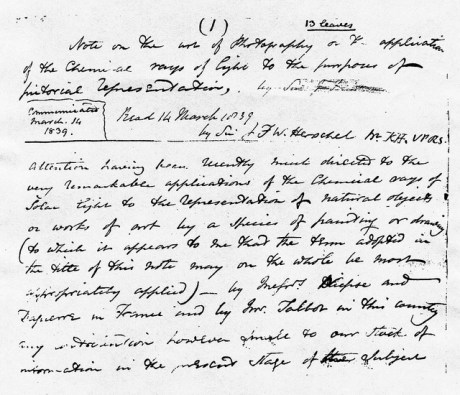 (1)
13 leaves
Note on the art of Photography or The application
of the Chemical rays of light to the purposes of
pictorial representation, by Sir
Communicated
March. 14
1839.
Read 14 March 1839
by Sir J F W. Herschel Bt. K.H. V.P.R.S.
Attention having been recently much directed to the
very remarkable applications of the Chemical rays of
Solar light to the representation of natural objects
or works of art by a species of painting or drawing
(to which it appears to me that the term adopted in
the title of this note may on the whole be most
appropriately applied) — by Messrs Niepse and
Daguerre in France and by Mr. Talbot in this country
any extension however simple to our stock of
information in the present stage of the subject